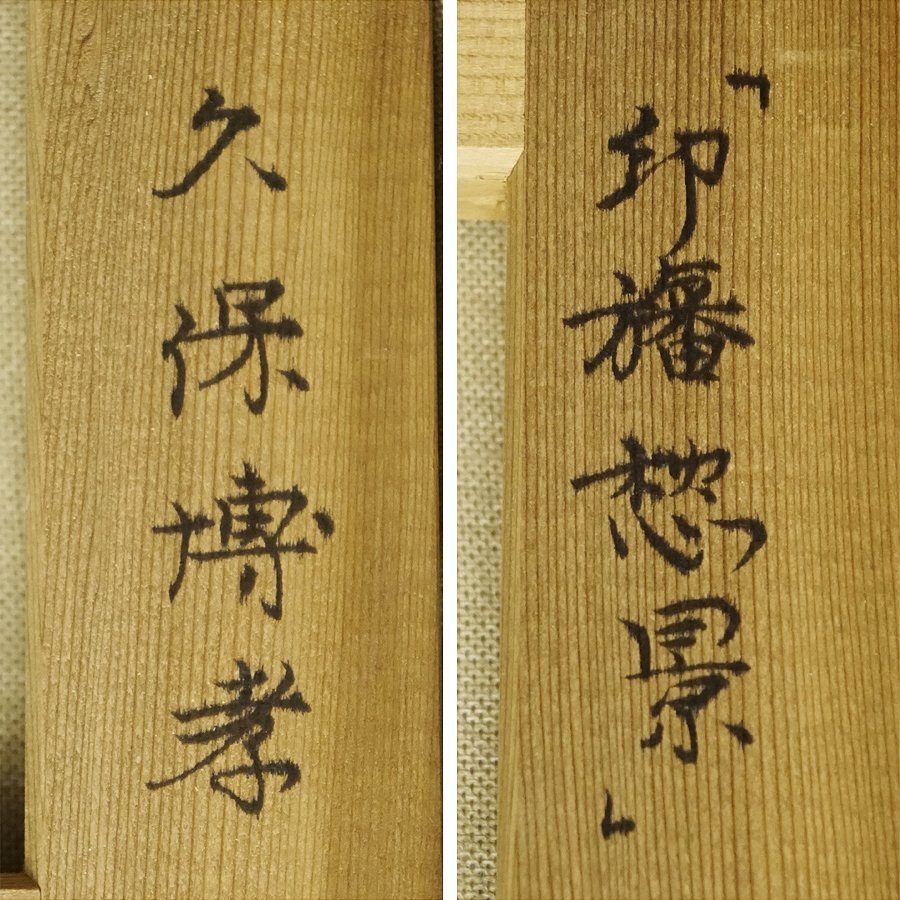 「印旛想景」
久保博孝